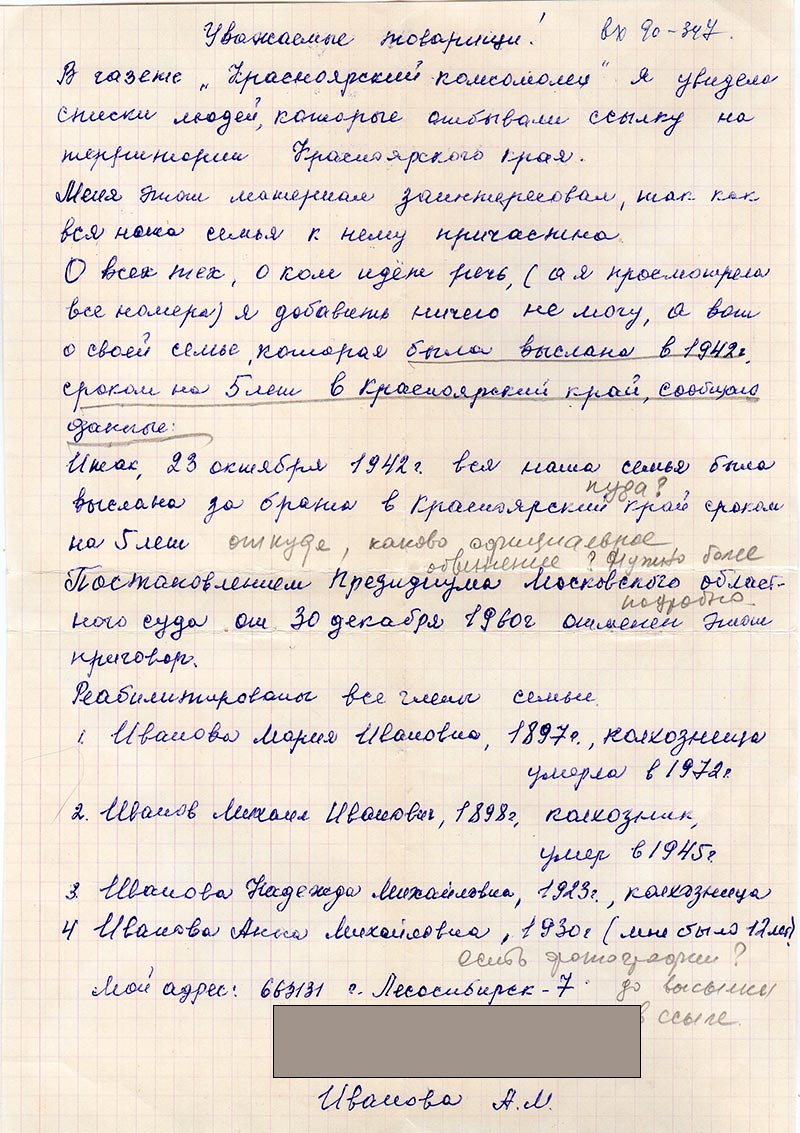 Уважаемые товарищи! вх 90-347.
В газете „Красноярский комсомолец" я увидела
списки людей, которые отбывали ссылку на
территории Красноярского края.
Меня этот материал заинтересовал, так как
вся наша семья к нему причастна
О всех тех, о ком идёт речь, (а я просмотрела
все номера) я добавить ничего не могу, а вот
о своей семье, которая была выслана в 1942г,
сроком на 5 лет в Красноярский край, сообщаю
данные:
Итак, 23 октября 1942г. вся наша семья была
куда?
выслана за брата в Красноярский край сроком
на 5 лет откуда, каково официальное
обвинение? Нужно более
Постановлением Президиума Московского област-
подробно
ного суда от 30 декабря 1960г отменён этот
приговор.
Реабилитированы все члены семьи.
1. Иванова Мария Ивановна, 1897г., колхозница
умерла в 1972г
2. Иванов Михаил Иванович, 1898г, колхозник,
умер в 1945г
3. Иванова Надежда Михайловна, 1923г., колхозница
4 Иванова Анна Михайловна, 1930г (мне было 12 лет)
есть фотографии?
Мой адрес: 663131 г. Лесосибирск-7 до высылки
в ссылке.
Иванова А.М.